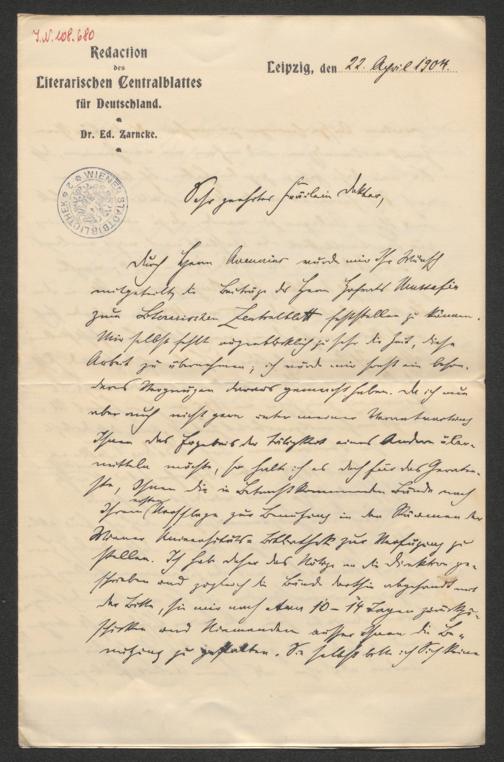 J.N. 108.680
Redaction
des
Literarischen Centralblattes
für Deutschland.
Dr. Ed. Zarncke.
Leipzig, den 22. April 1904.
WIENER STADTBIBLIOTHEK
Sehr geehrtes Fräulein Doktor,
Durch Herrn wurde mir Ihr Wunsch
mitgeteilt, die Beiträge des Herrn Hofrats Mussafia
zum Literarischen Zentralblatt feststellen zu können.
Mir selbst fehlt augenblicklich zu sehr die Zeit, diese
Arbeit zu übernehmen; ich würde mir sonst ein beson-
deres Vergnügen daraus gemacht haben. Da ich nun
aber auch nicht gern unter meiner Verantwortung
Ihnen das Ergebnis der Tätigkeit eines Andern über-
mitteln möchte, so halte ich es doch für das Geraten-
ste, Ihnen die in Betracht kommenden Bände nach
Ihrem Vorschlage zur Benutzung in den Räumen der
Wiener Universitäts-Bibliothek zur Verfügung zu
stellen. Ich habe daher das Nötige an die Direktion ge-
schrieben und zugleich die Bände dorthin abgesandt mit
der Bitte, sie mir nach etwa 10-14 Tagen zurückzu-
schicken und Niemandem ausser Ihnen die Be-
nutzung zu gestatten. Sie selbst bitte ich Sich